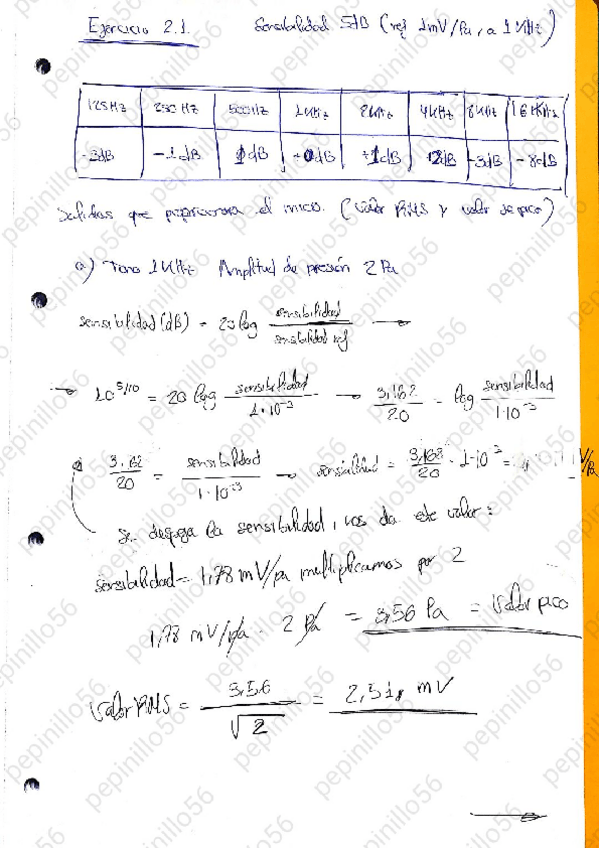 Ejercicio 2.1. Sensibilidad 5dB (ref 1mV/Pa, a 1KHz)
125Hz 250Hz 500Hz 1KHz 2KHz 4KHz 8KHz 16KHz
-3dB -1dB 0dB +1dB +2dB -3dB -8dB
que el micro. (valor RMS y valor de pico)
a) Tono 1KHz Amplitud de presión 2 Pa
sensibilidad (dB) = 20 log sensibilidad / sensibilidad ref →
→ 10^5/10 = 20 log sensibilidad / 1·10^-3 → 3,162 / 20 = log sensibilidad / 1·10^-3
3,162 / 20 = sensibilidad / 1·10^-3 → sensibilidad = 3,162 / 20 · 1·10^-3 = V/Pa
Se despeja la sensibilidad, nos da este valor:
sensibilidad = 1,78 mV/Pa multiplicamos por 2
1,78 mV/Pa · 2 Pa = 3,56 Pa = valor pico
Valor RMS = 3,56 / √2 = 2,51 mV
pepinillo56